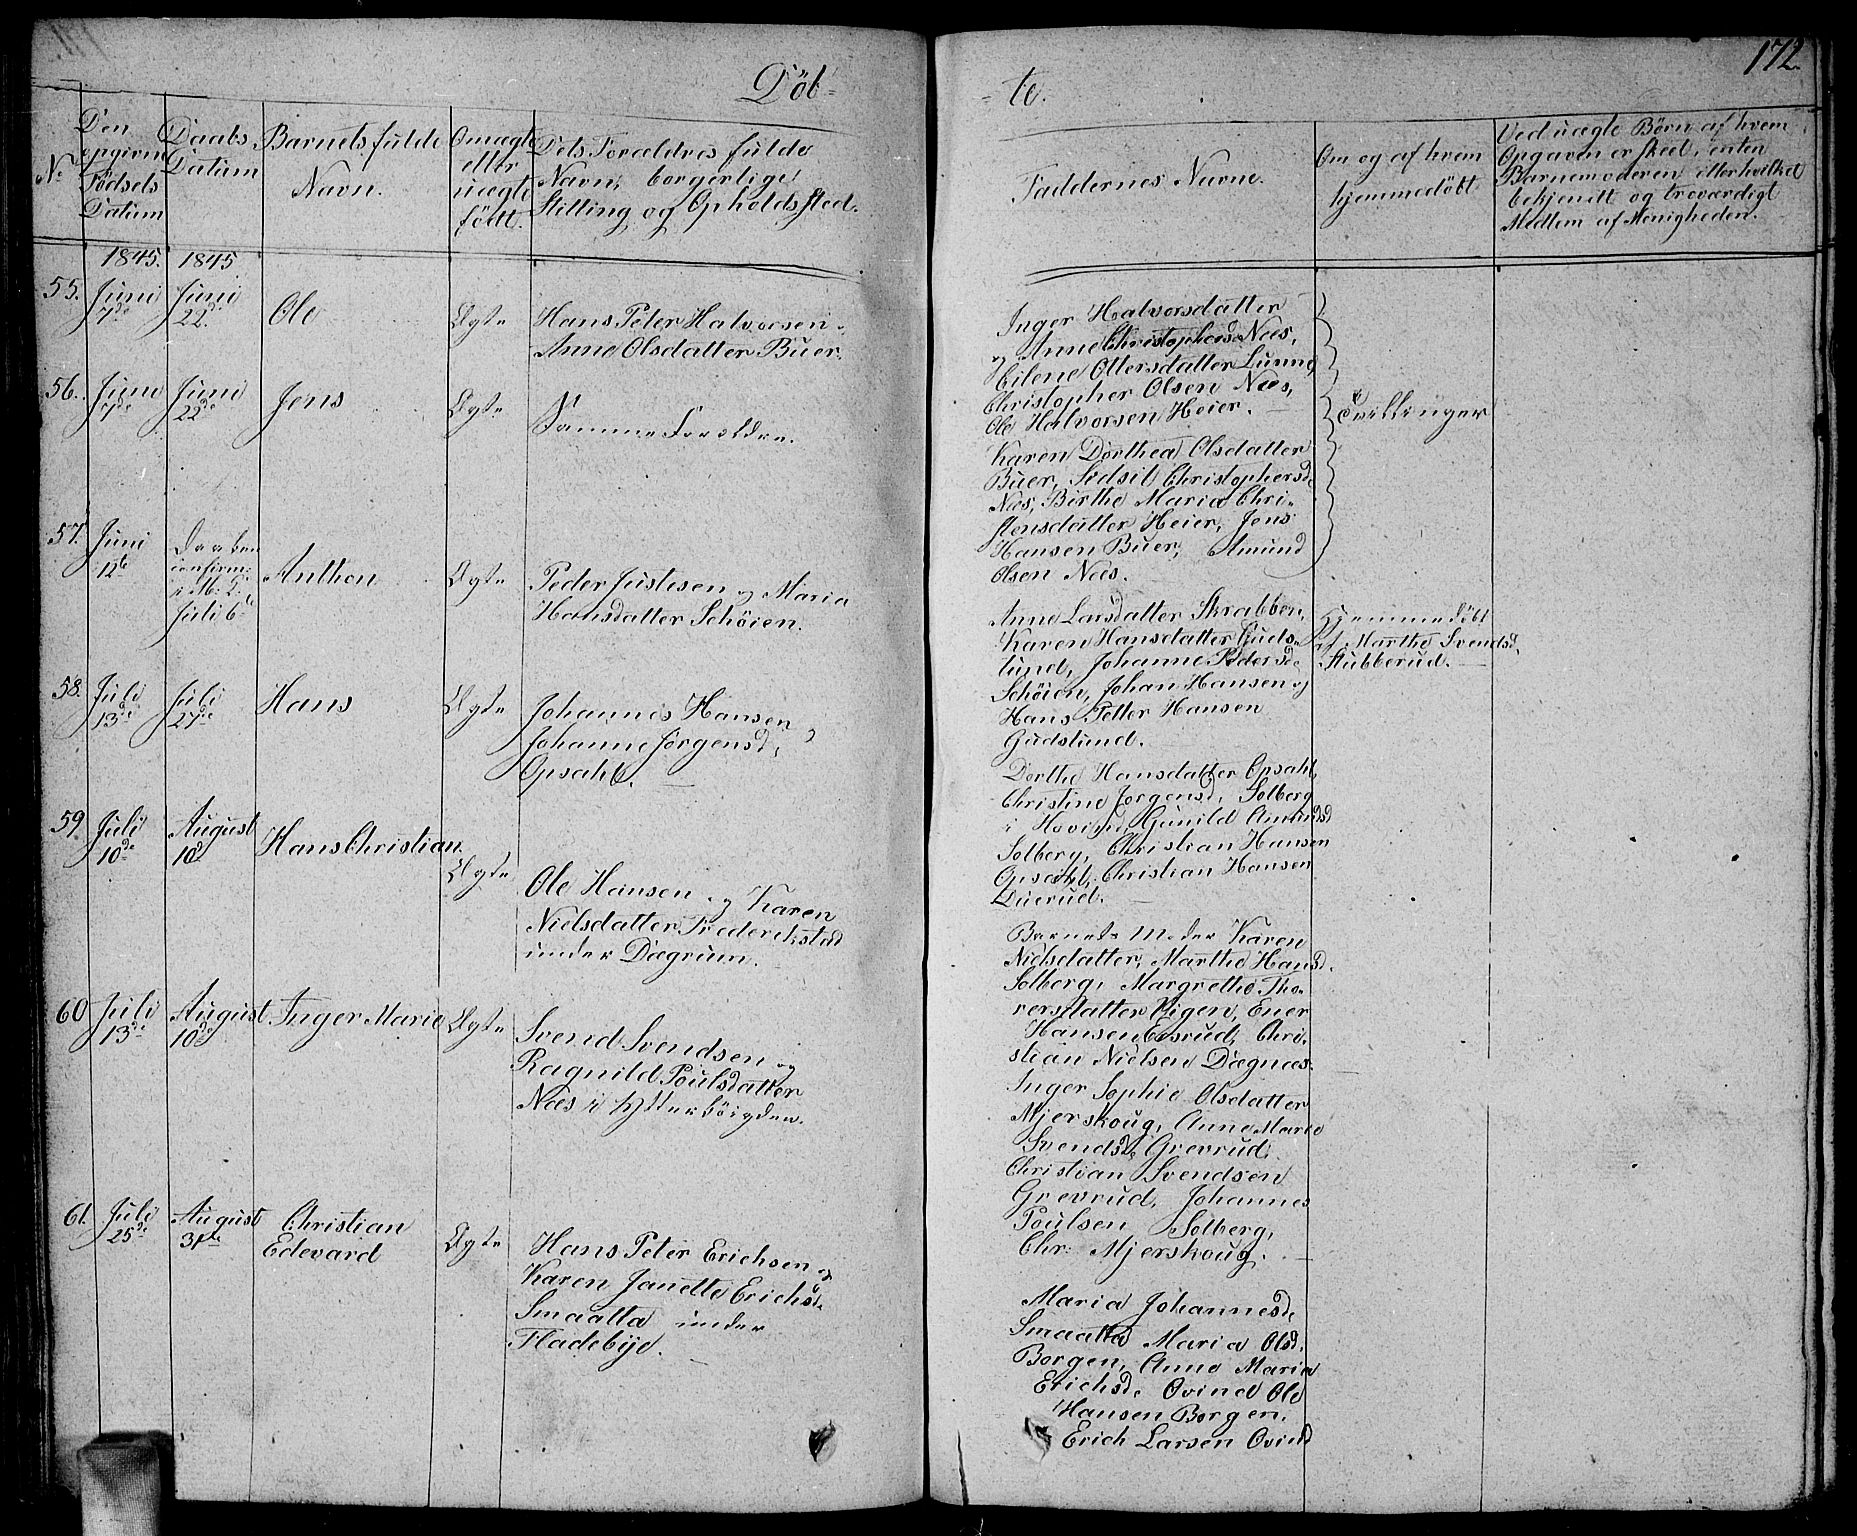 172.
Döb-
-te.
No
Den
opgivne
Födsels
Datum
Daabs
Datum
Barnets fulde
Navn.
Om ægte
eller
uægte
födt.
Dets Forældres fulde
Navn, borgerlige
Stilling og Opholdssted.
Faddernes Navne.
Om og af hvem
hjemmedöbt
Ved uægte Börn af hvem
Opgaven er skeet, enten
Barnemoderen eller hvilket
bekjendt og troværdigt
Medlem af Menigheden.
1845. 1845
55.
Juni
7de
Juni
22de
Ole
Ægte
Hans Peter Halvorsen
Anne Olsdatter Buer.
Inger Halvorsdatter
og Anne Christophersd. Næs,
Eilene Ottersdatter Lunn
Christopher Olsen Næs,
Ole Halvorsen Heier.
56.
Juni
7de
Juni
22de
Jens
Ægte
Samme Forældre.
Karen Dorthea Olsdatter
Buer, Sidsil Christophersd.
Næs, Birthe Maria Chri-
stensdatter Heier, Jens
Hansen Buer, Amund
Olsen Næs.
Tvillinger
57.
Juni
12te
Daaben
confirm:
i M. D.
Juli 6te
Anthon
Ægte
Peder Justesen og Maria
Hansdatter Schöien.
Anne Larsdatter Skrabben,
Karen Hansdatter Guds-
lund, Johanne Pedersd.
Schöien, Johan Hansen og
Hans Petter Hansen
Gudslund.
Hjemmedöbt
af Marthe Svendsd.
Stubberud.
58.
Juli
13de
Juli
27de
Hans
Ægte
Johannes Hansen
Johanne Jörgensd.
Opsahl.
Dorthe Hansdatter Opsahl,
Christine Jorgensd. Solberg
i Hovind, Gunild Amundsd
Solberg, Christian Hansen
Opsahl, Christian Hansen
Duerud.
59.
Juli
10de
August
10de
Hans Christian
Ægte
Ole Hansen og Karen
Nielsdatter Frederikstad
under Dægrum.
Barnets Moder Karen
Nielsdatter, Marthe Hansd.
Solberg, Margrethe Tho-
rersdatter Vigen, Ener
Hansen Eesrud, Chri-
stian Nielsen Dægnæs.
60
Juli
13de
August
10de
Inger Marie
Ægte
Svend Svendsen og
Ragnild Poulsdatter
Næs i Ytterböigden.
Inger Sophie Olsdatter
Mjerskoug, Anne Marie
Svendsd. Grevrud,
Christian Svendsen
Grevrud, Johannes
Poulsen Solberg,
Chr: Mjerskoug.
61.
Juli
25de
August
31te
Christian
Edevard
Ægte
Hans Peter Erichsen og
Karen Janette Erichsd.
Smaalta under
Fladebije.
Maria Johannesd.
Smaalta Maria Olsd.
Borgen, Anne Maria
Erichsd. Ovind Ole
Hansen Borgen.
Erich Larsen Ovind